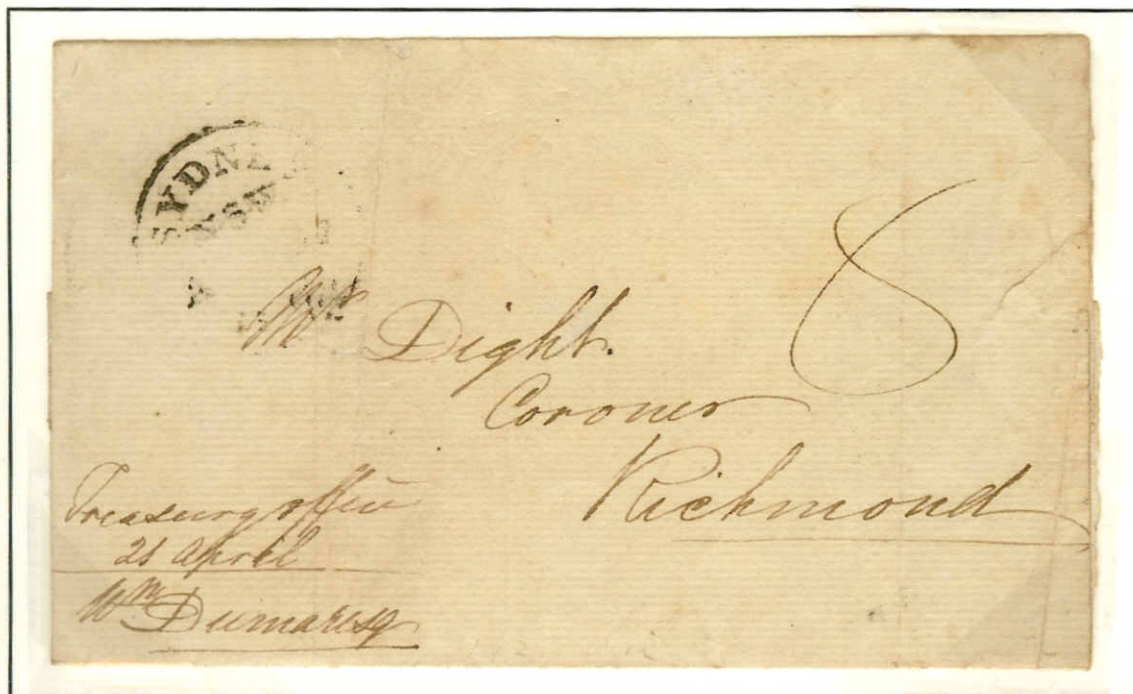 SYDNEY
NSW
8
Mr Dight.
Coroner
Richmond
Treasury Office
21 April
Wm Dumaresq